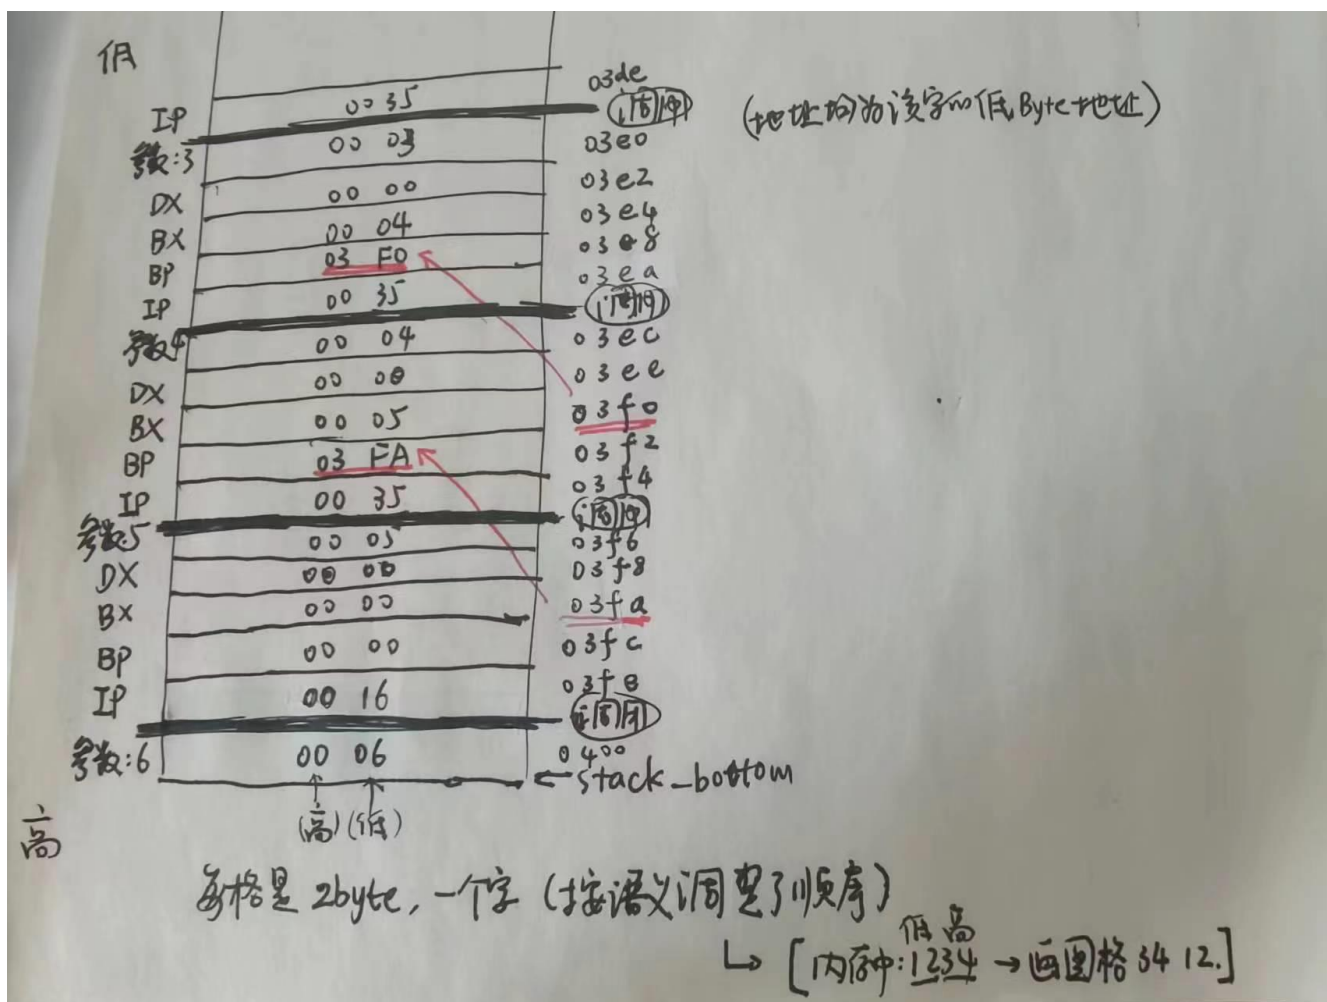 低
03de
IP 00 35 调用 (地址均为该字的低Byte地址)
参数:3 00 03 03e0
DX 00 00 03e2
BX 00 04 03e4
BP 03 F0 03e8
IP 00 35 03ea
调用
参数4 00 04 03ec
DX 00 00 03ee
BX 00 05 03f0
BP 03 FA 03f2
IP 00 35 03f4
调用
参数5 00 05 03f6
DX 00 00 03f8
BX 00 00 03fa
BP 00 00 03fc
IP 00 16 03fe
调用
参数:6 00 06 0400
stack_bottom
高 (高)(低)
每格是2byte,一个字(按语义调整了顺序)
低 高
[内存中:1234→画图格 34 12.]